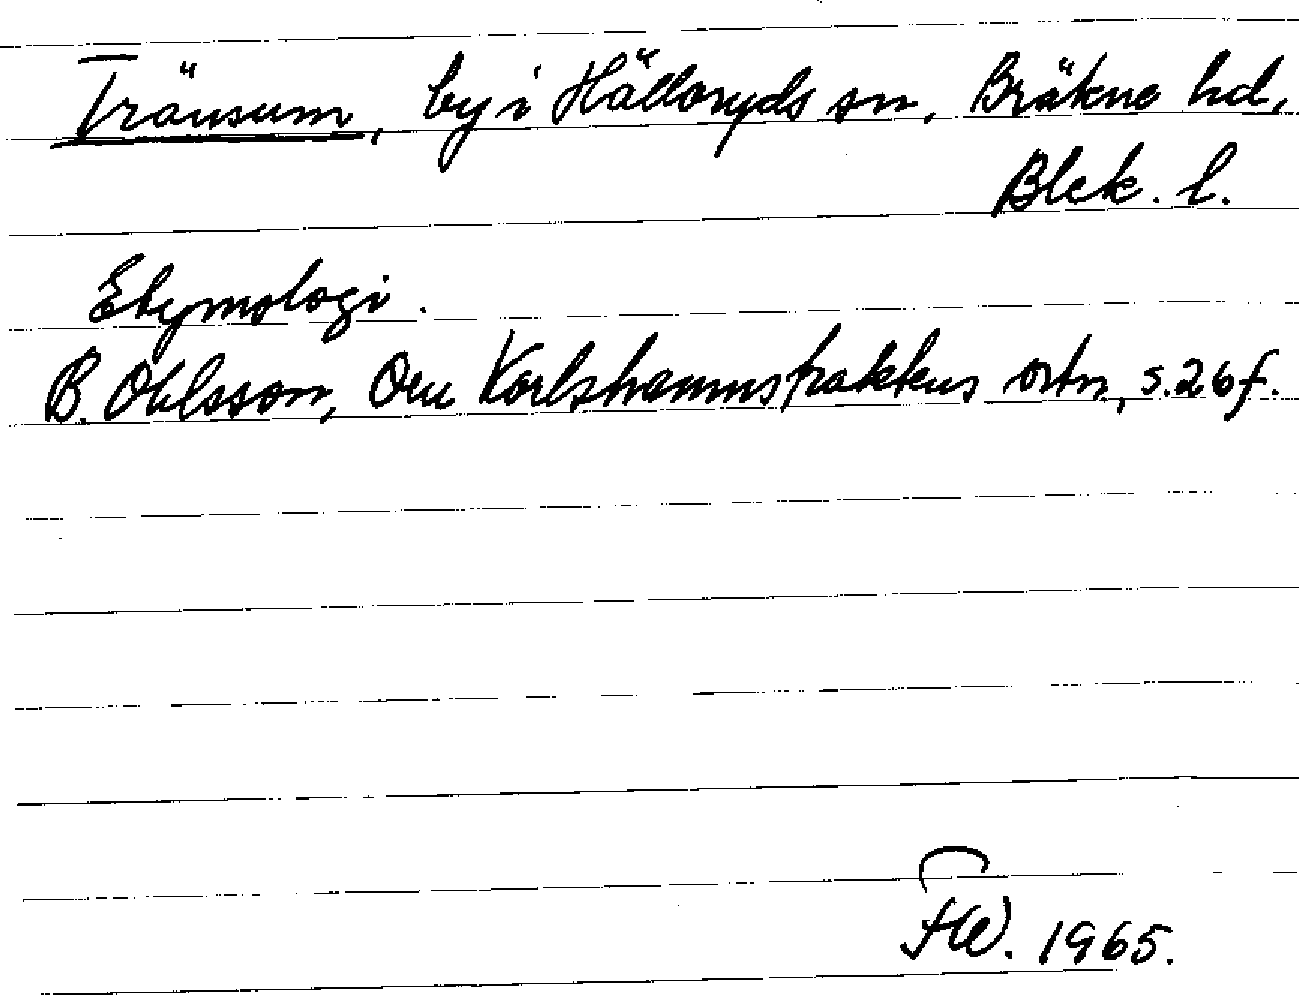 Tränsum, by i Hälloryds sn, Bräkne hd,
Blek. l.
Etymologi.
B. Ohlsson, Om Karlshamnstraktens ortn, s. 26 f.
HW. 1965.